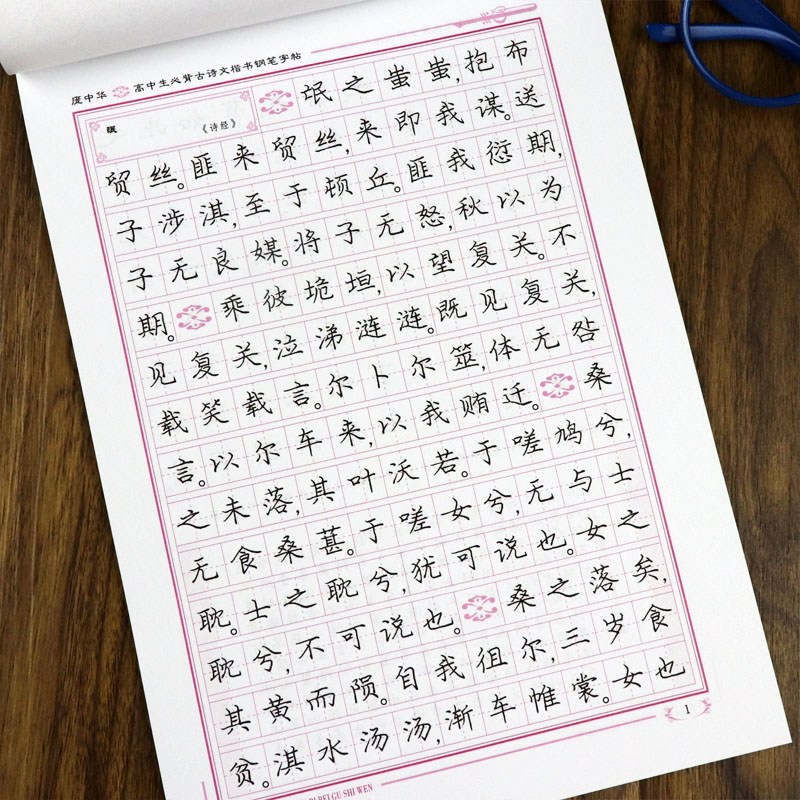 庞中华 高中生必背古诗文楷书钢笔字帖
氓 《诗经》
氓之蚩蚩,抱布
贸丝。匪来贸丝,来即我谋。送
子涉淇,至于顿丘。匪我愆期,
子无良媒。将子无怒,秋以为
期。乘彼垝垣,以望复关。不
见复关,泣涕涟涟。既见复关,
载笑载言。尔卜尔筮,体无咎
言。以尔车来,以我贿迁。桑
之未落,其叶沃若。于嗟鸠兮,
无食桑葚。于嗟女兮,无与士
耽。士之耽兮,犹可说也。女之
耽兮,不可说也。桑之落矣,
其黄而陨。自我徂尔,三岁食
贫。淇水汤汤,渐车帷裳。女也
1
BEI GU SHI WEN